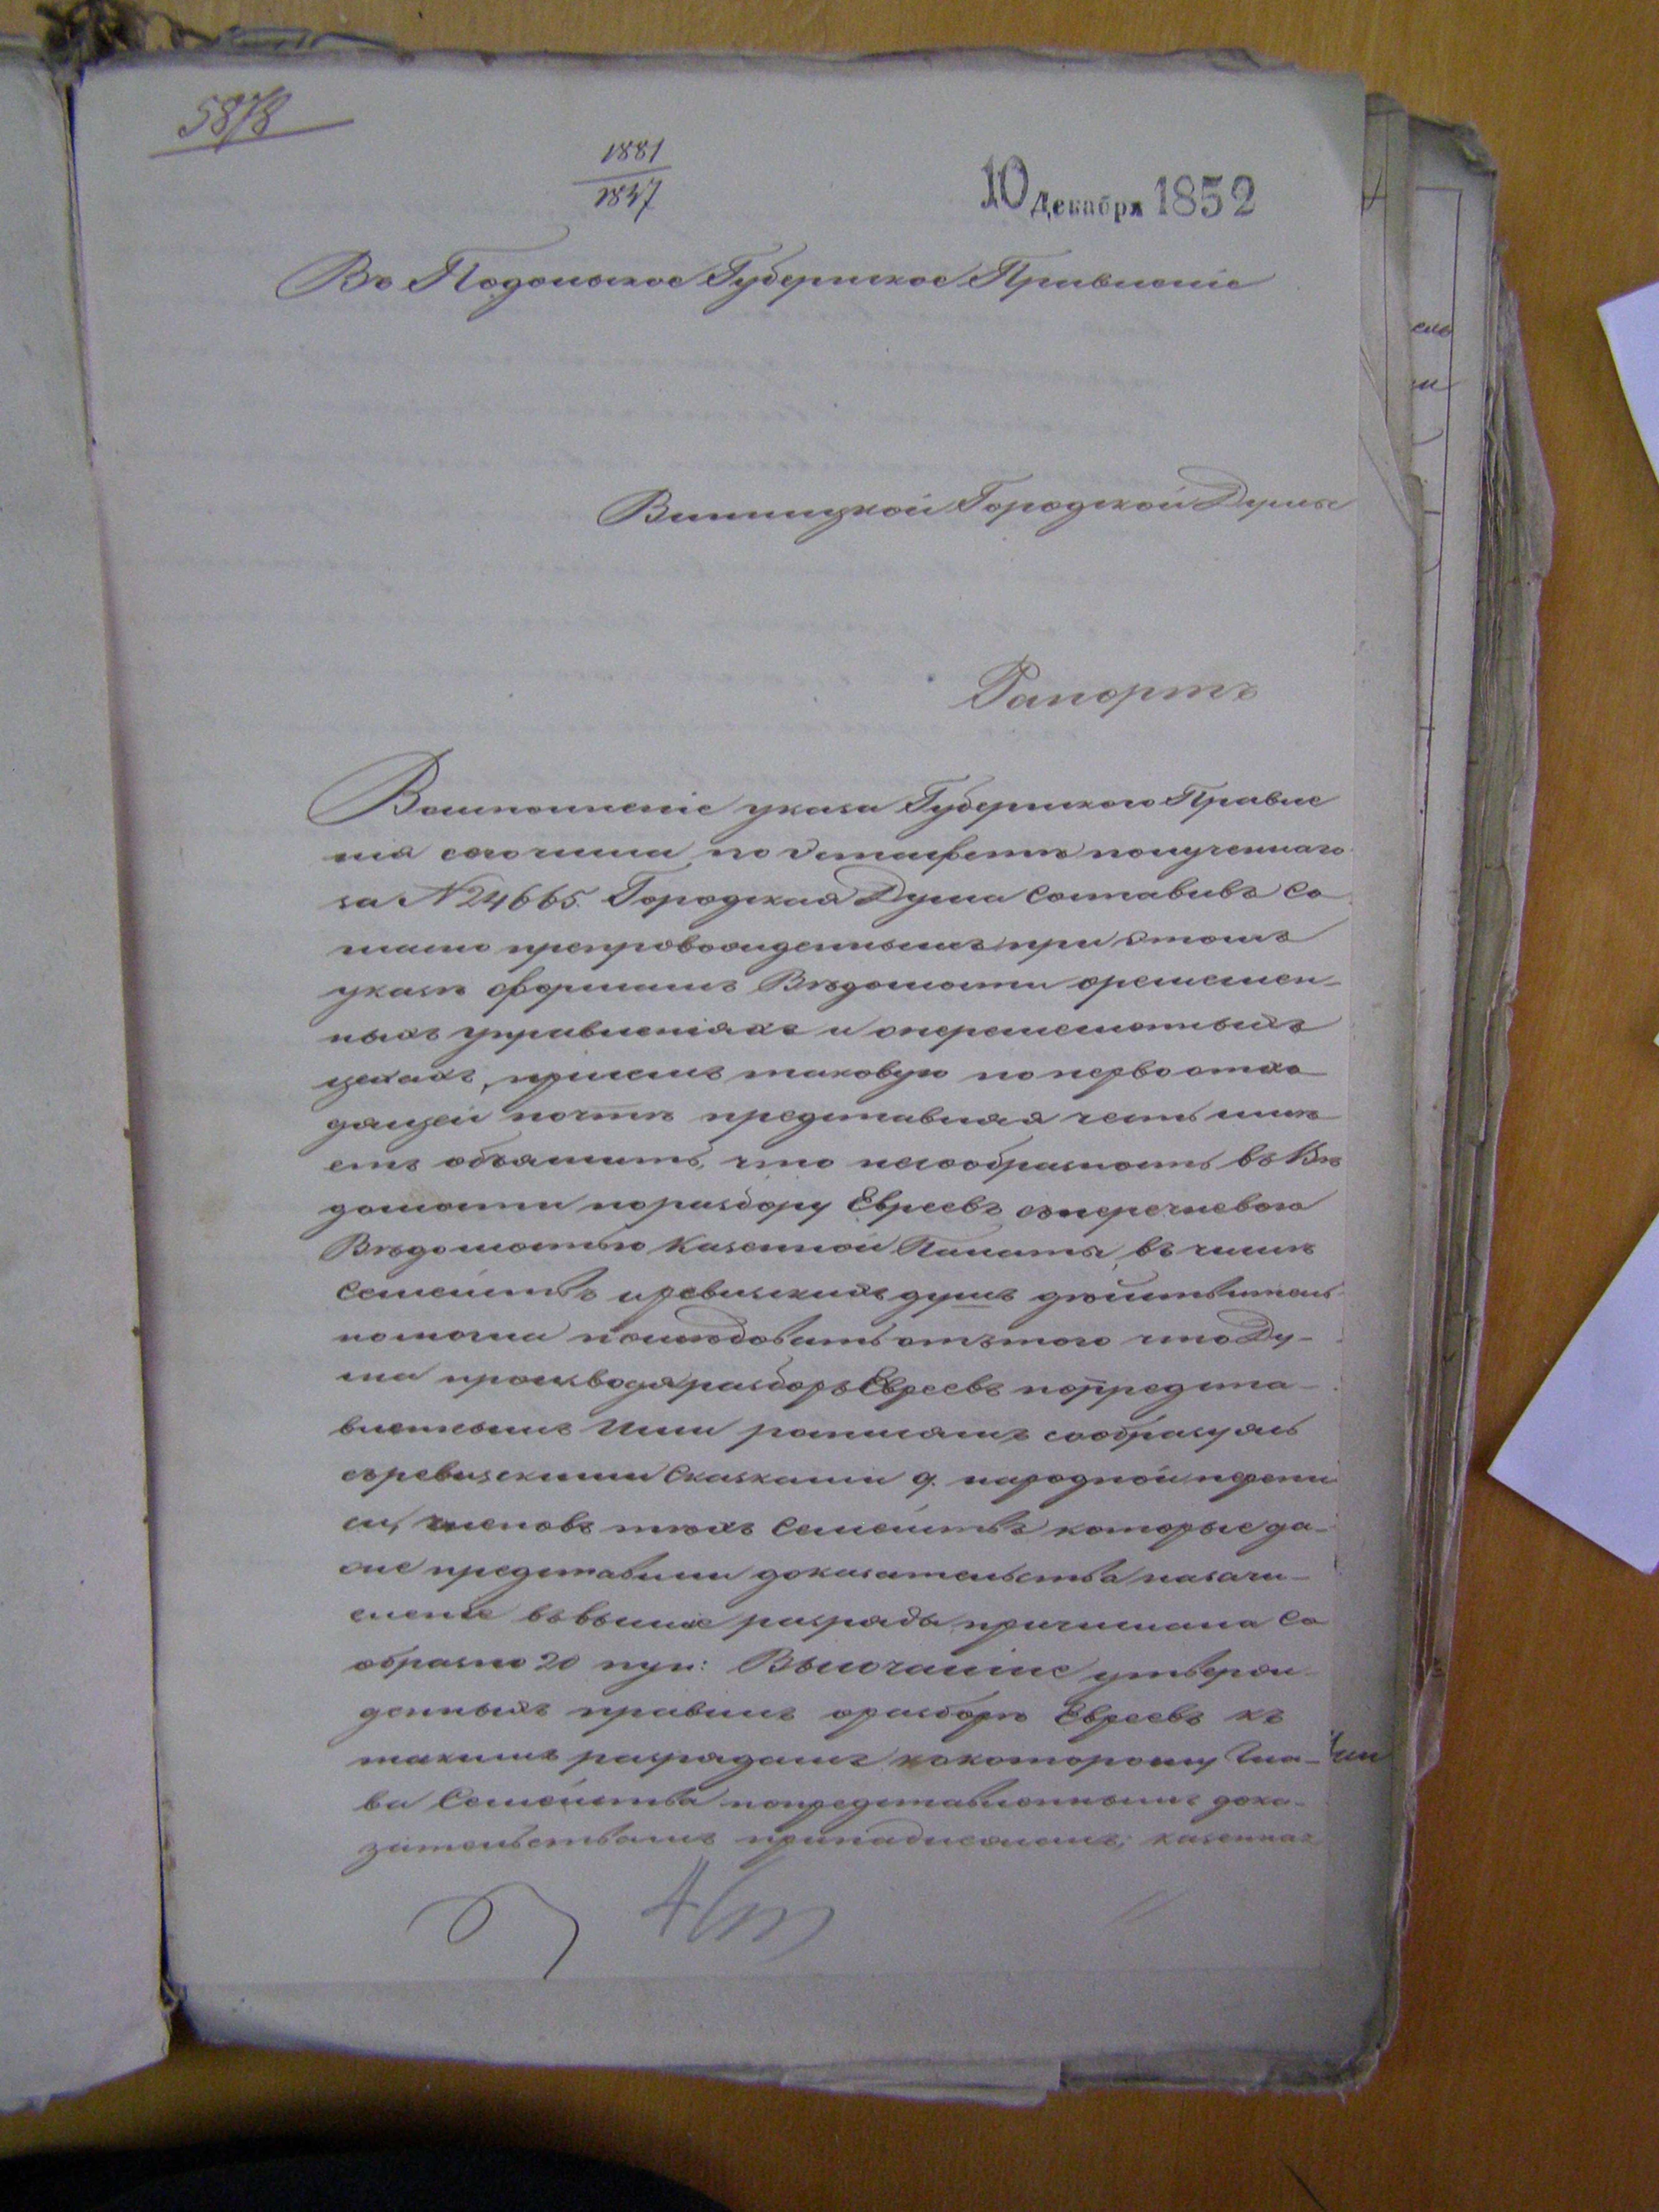 5878
1881
1847
10 Декабря 1852
Въ Подольское Губернское Правленіе
Винницкой Городской Думы
Рапортъ
Воисполненіе указа Губернскаго Правле
нія сего числа по эстафетѣ полученнаго
за № 24665. Городская Дума составивъ со
гласно препровожденнымъ при этомъ
указѣ формамъ Вѣдомости оремеслен-
ныхъ управленіяхъ и
цехахъ, таковую по первоотхо
дящей почтѣ представляя честь имѣ
етъ объяснить, что несообразность въ Вѣ
домости поразбору Евреевъ сперечневою
Вѣдомостью Казенной Палаты, въ числѣ
Семействъ иревизскихъ душъ дѣйствитель
номогла послѣдовать отътого что Ду-
ма производя разборъ Евреевъ попредста-
вленнымъ Ими сообразуясь
съревизскими Сказками 9. народной перепи
си, членовъ тѣхъ Семействъ которые да-
же представили доказательства назачи-
сленіе въвысшіе разряды, причислила Со
образно 20 пун: Высочайше утверж-
денныхъ правилъ оразборѣ Евреевъ къ
такимъ разрядамъ ккоторому Гла-
ва Семейства попредставленнымъ дока-
зательствамъ принадлежитъ; казенная